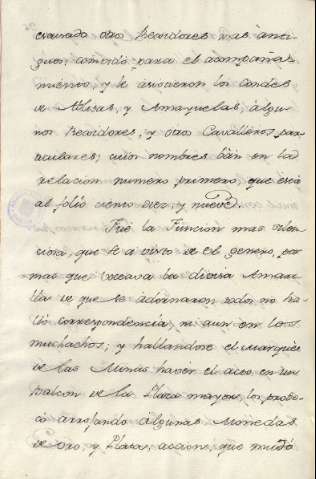 otros Regidores mas anti-
guos, comvidó para el acompaña-
miento, y le asistieron los Condes
de Ablitas, y Amayuelas, algu-
nos Regidores, y otros Cavalleros par-
ticulares, cuios nombres bàn en la
relacion numero primero, que está
al folio ciento diez, y nueve.
Fué la Funcion mas silen-
ciosa, que se à visto de el genero, por
mas que la divisa Amari-
lla de que se adornaron todos no ha-
lló correspondencia, ni aun en los
muchachos; y hallandose el Marques
de las Minas haver el acto en un
Balcon de la Plaza mayor, los probo-
có arrojando algunas Monedas
de oro, y Plata, accion, que mudó